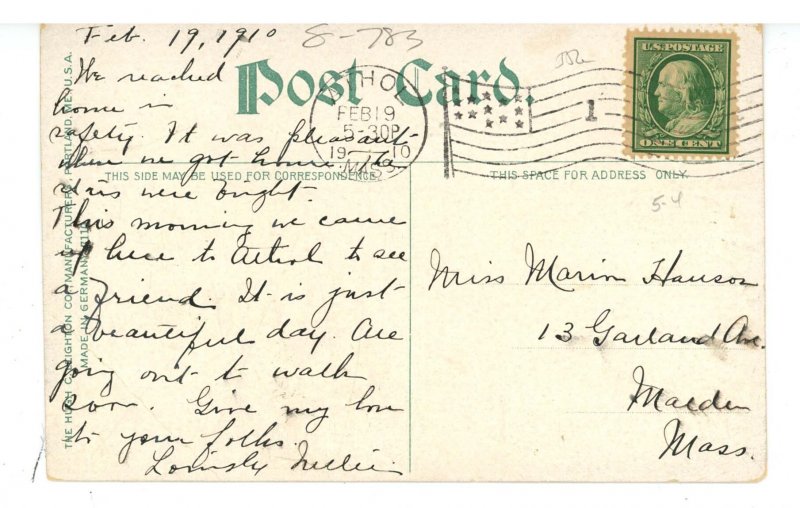 Feb. 19, 1910
8-783
Post Card.
ATHOL
FEB 19
5-30P
19 10
MASS.
1
U.S. POSTAGE
ONE CENT
THIS SIDE MAY BE USED FOR CORRESPONDENCE.
THIS SPACE FOR ADDRESS ONLY.
5-4
We reached
home in
safety. It was pleasant
when we got home. The
stars were bright.
This morning we came
up here to Athol to see
a friend. It is just
a beautiful day. Are
going out to walk
soon. Give my love
to your folks.
Lovingly Nellie
Miss Marion Hanson
13 Garland Ave.
Malden
Mass.
THE HUGH C. LEIGHTON CO., MANUFACTURERS, PORTLAND, ME., U.S.A.
MADE IN GERMANY